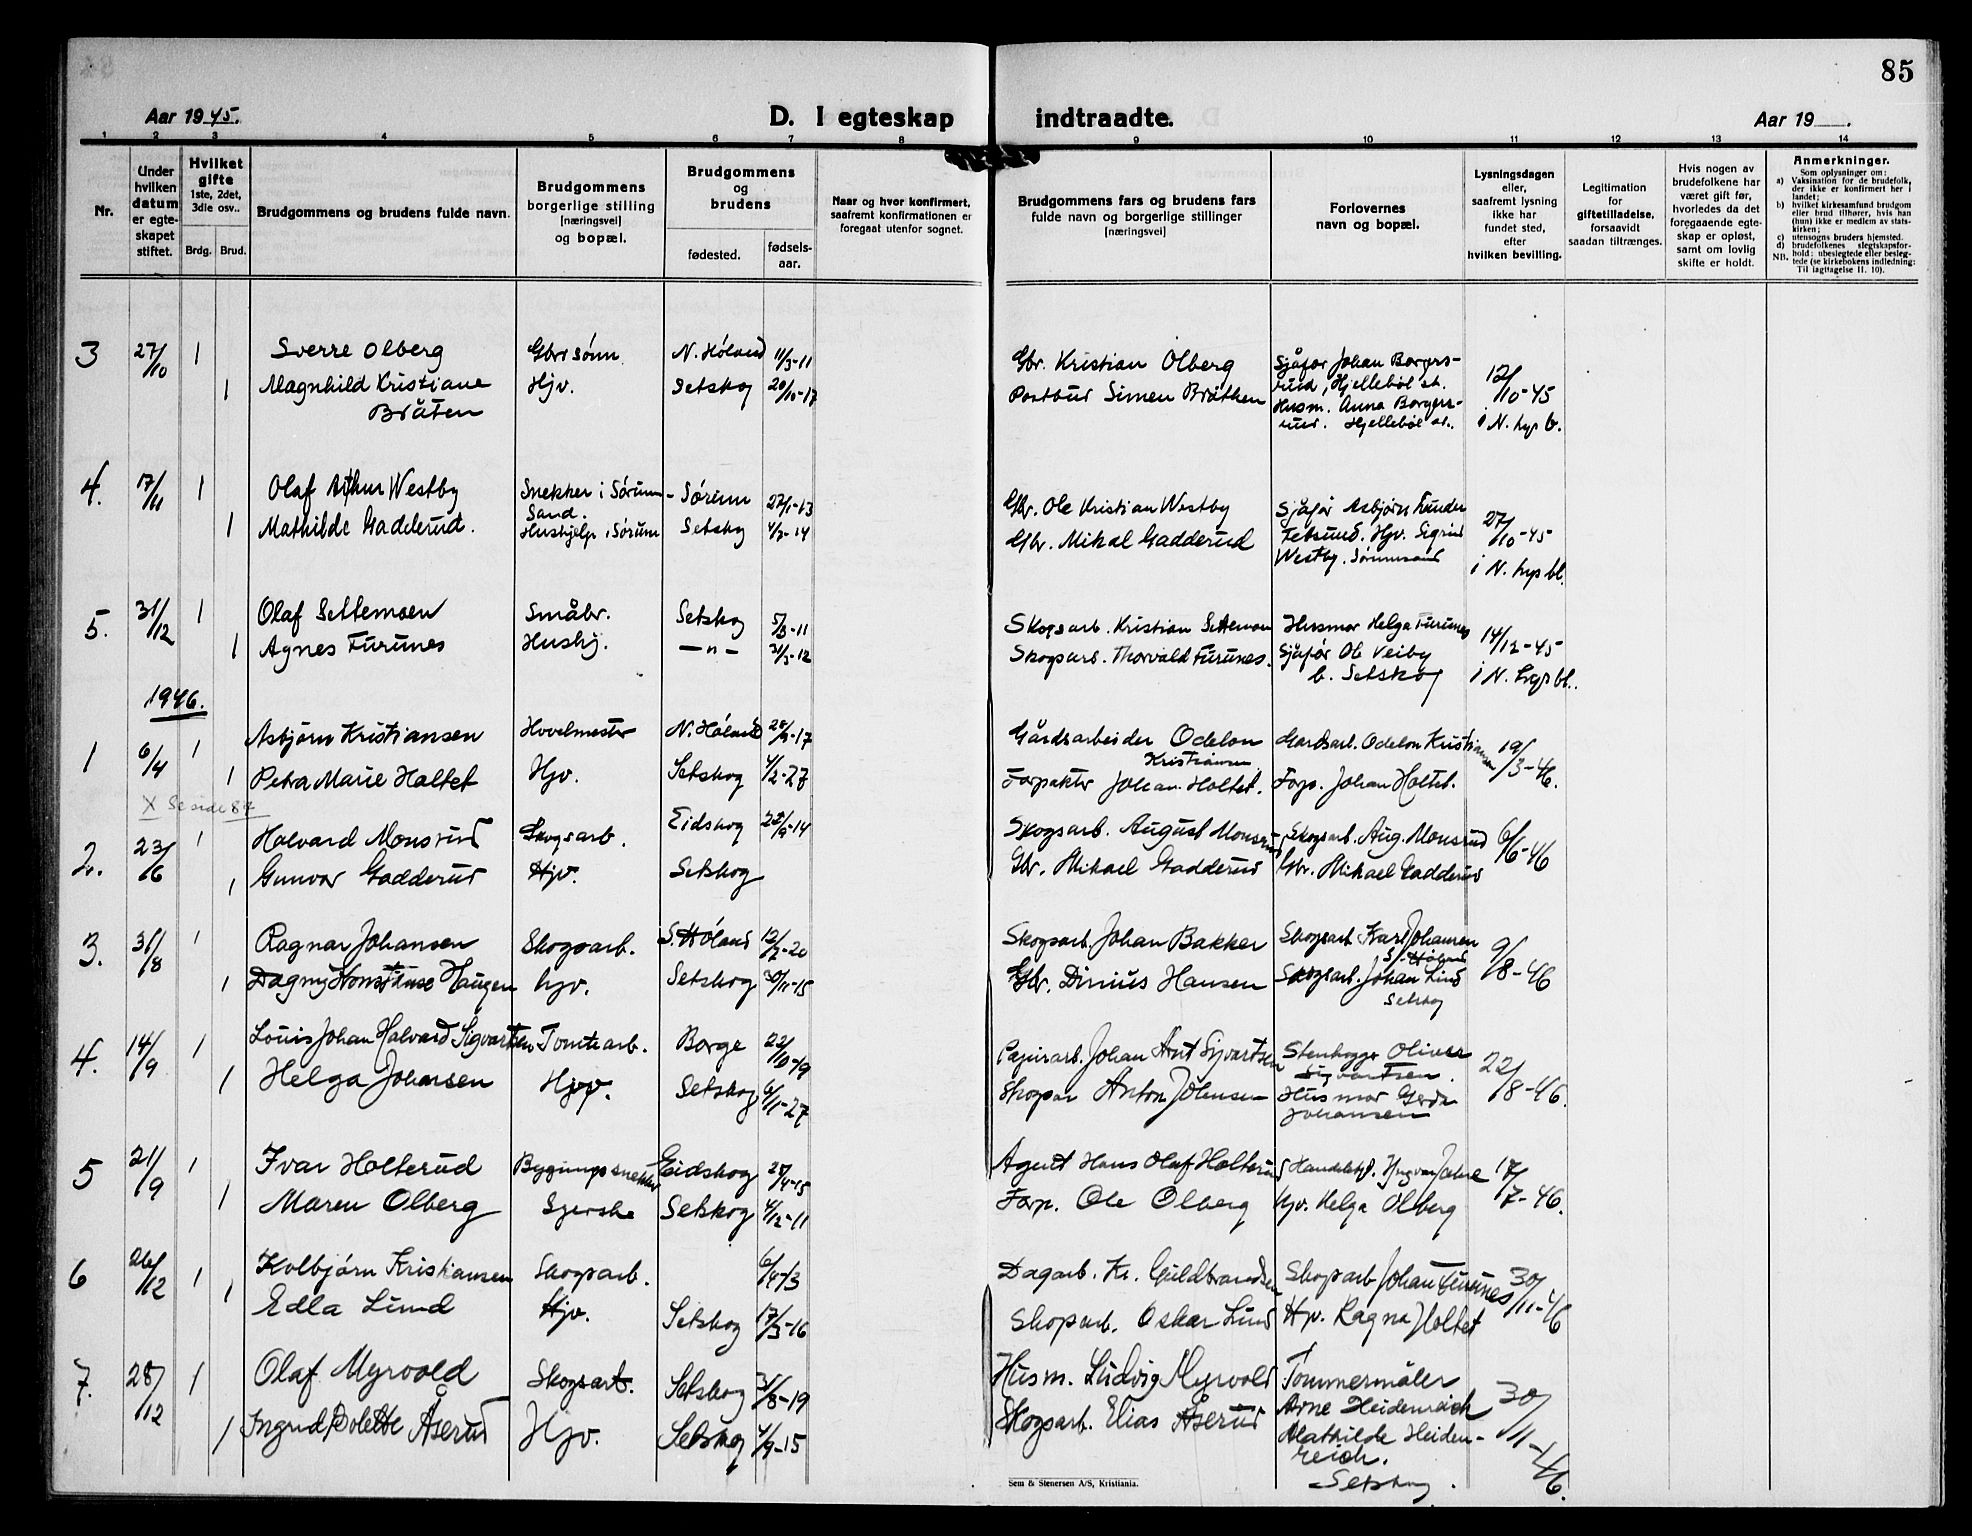 85
Aar 1945.
D. I egteskap indtraadte.
Aar 19
1 2 3 4 5 6 7 8 9 10 11 12 13 14
Nr.
Under hvilken datum er egte-skapet stiftet.
Hvilket gifte 1ste, 2det, 3die osv..
Brdg. Brud.
Brudgommens og brudens fulde navn.
Brudgommens borgerlige stilling [næringsvei] og bopæl.
Brudgommens og brudens
fødested.
fødsels-aar.
Naar og hvor konfirmert, saafremt konfirmationen er foregaat utenfor sognet.
Brudgommens fars og brudens fars fulde navn og borgerlige stillinger [næringsvei]
Forlovernes navn og bopæl.
Lysningsdagen eller, saafremt lysning ikke har fundet sted, efter hvilken bevilling.
Legitimation for giftetilladelse, forsaavidt saadan tiltrænges.
Hvis nogen av brudefolkene har været gift før, hvorledes da det foregaaende egte-skap er opløst, samt om lovlig skifte er holdt.
Anmerkninger.
Som oplysninger om:
a) Vaksination for de brudefolk, der ikke er konfirmert her i landet;
b) hvilket kirkesamfund brudgom eller brud tilhører, hvis han (hun) ikke er medlem av stats-kirken;
c) utensogns bruders hjemsted.
d) brudefolkenes slegtskapsfor-hold: ubeslegtede eller besleg-tede (se kirkebokens indledning:
NB. Til iagttagelse II. 10).
3 27/10 1 Sverre Olberg Gbr sønn N. Høland 11/3-11 Gbr. Kristian Olberg Sjåfør Johan Borgers-
1 Magnhild Kristiane Hjv. Setskog 20/10-17 Postbud Simen Bråthen rud, Hjellebøl st. 12/10-45
Bråten Husm. Anna Borgers-
rud. Hjellebøl st. i N. lysb.
4. 17/11 1 Olaf Arthur Westby Snekker i Sørum- Sørum 27/1-13 Gbr. Ole Kristian Westby Sjåfør Asbjørn
Sand.
1 Mathilde Gadderud. Hushjelp i Sørum Setskog 4/3-14 Gbr. Mikal Gadderud Fetsund. Hjv. Sigrid 27/10-45
Westby. Sørumsand i N. lysbl.
5. 31/12 1 Olaf Settemsen Småbr. Setskog 5/3-11 Skogsarb. Kristian Husmor Helga Furunes 14/12-45
1 Agnes Furunes Hushj. —"— 31/3-12 Skogsarb. Thorvald Furunes. Sjåfør Ole Veiby
b. Setskog i N. Lysbl..
1946.
1 6/4 1 Asbjørn Kristiansen Hovelmester N. Høland 17 Gårdsarbeider Odelon Gardsarb. Odelon Kristiansen 19/3-46.
Kristiansen
1 Petra Marie Holtet Hjv. Setskog 4/2-27 Forpakter Johan Holtet. Forp. Johan Holtet.
X Se side 87
2. 23/6 1 Halvard Monsrud Skogsarb. Eidskog 22/9-14 Skogsarb. August Monsrud Skogsarb. Aug. Monsrud 6/6-46
1 Gunvor Gadderud Hjv. Setskog Gbr. Mikael Gadderud Gbr. Mikael Gadderud
3. 31/8 1 Ragnar Johansen Skogsarb. S. Høland 12/7-20 Skogsarb. Johan Bakker Skogsarb. Johansen 9/8-46
S. Høland
1 Dagny Haugen hjv. Setskog 30/11-15 Gbr. Dinius Hansen Skogsarb. Johan Lund
Setskog
4. 14/9 1 Louis Johan Halvard Sigvartsen Tomtearb. Borge 22/10-19 Papirarb. Johan Arnt Sigvartsen Stenhogger Oliver
Sigvartsen. 22/8-46.
1 Helga Johansen Hjv. Setskog 6/11-27 Skogsar Anton Johansen Husmor Gerda
Johansen
5 21/9 1 Ivar Holterud Bygningssnekker Eidskog 15 Agent Hans Olaf Holterud 17/7-46.
1 Maren Olberg Syerske Setskog 4/12-11 Forp. Ole Olberg Hjv. Helga Olberg
6 26/12 1 Kolbjørn Kristiansen Skogsarb. 6/4-13 Dagarb. Kr. Guldbrandsen Skogsarb Johan Furunes 30/11-46
1 Edla Lund Hjv. Setskog 17/3-16 Skogarb. Oskar Lund Hjv. Ragna Holtet
7. 28/12 1 Olaf Myrvold Skogsarb. Setskog 31/8-19 Husm. Ludvig Myrvold Tømmermåler
Arne Heidenreich 30/11-46.
1 Ingrid Bolette Åserud Hjv. Setskog 4/9-15 Skogsarb. Elias Åserud Mathilde Heiden-
reich.
Setskog.
Sem & Stenersen A/S, Kristiania.